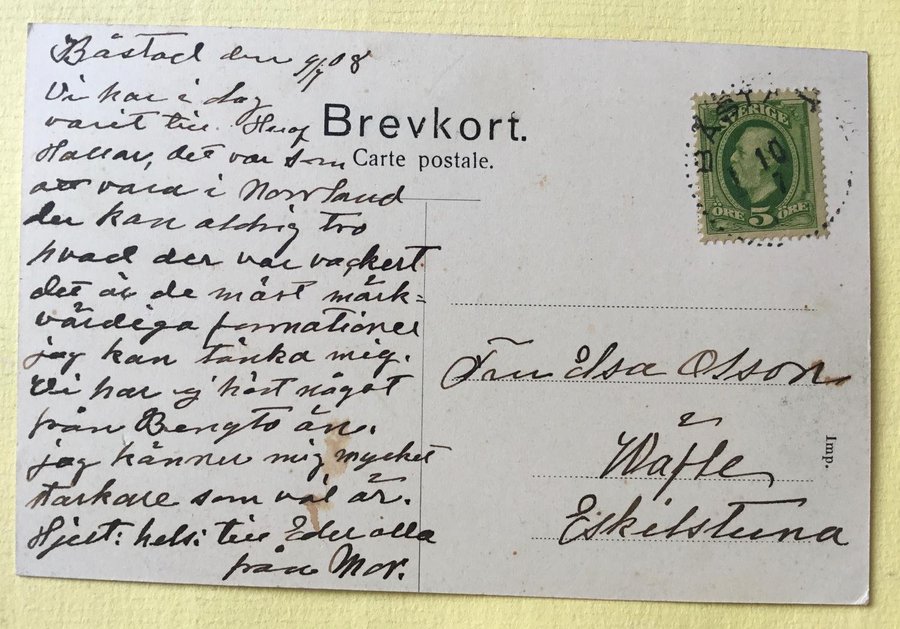 Båstad den 9/7 08
Vi har i dag
varit till Hovs
Hallar, det var som
att vara i Norrland
der kan aldrig tro
hvad der var vackert
det är de mäst märk=
värdiga formationer
jag kan tänka mig.
Vi har ej hört något
från Bengts än.
jag känner mig mycket
starkare som väl är.
Hjert: hels: till Eder alla
från Mor.
Brevkort.
Carte postale.
SVERIGE
ÖRE 5 ÖRE
BÅSTAD
10
7
Fru Isa Olsson
Eskilstuna
Imp.